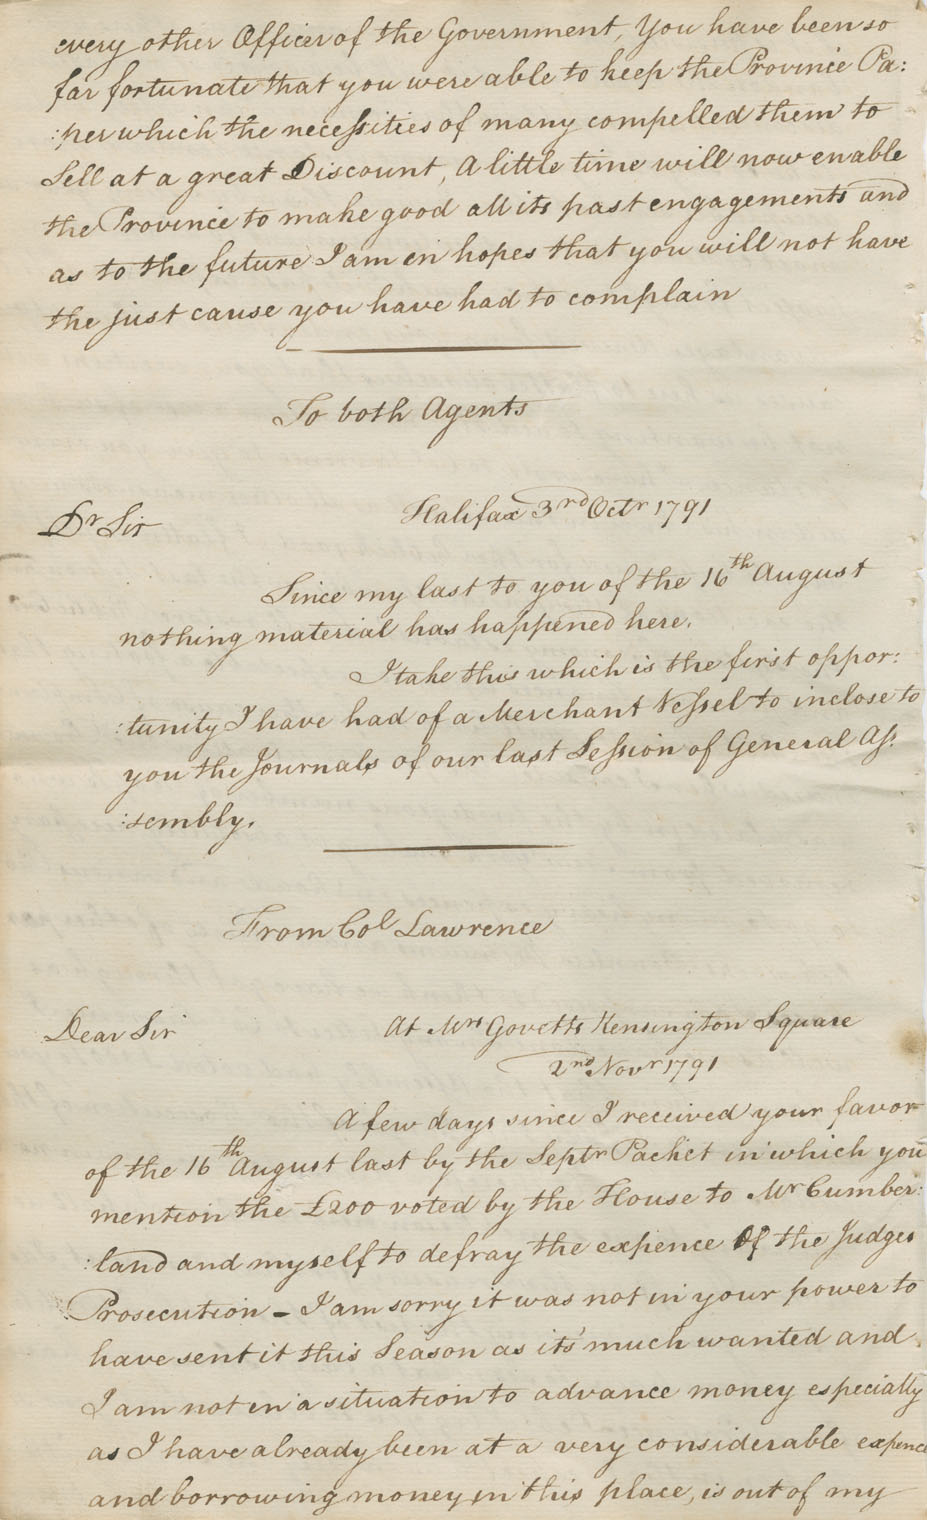 every other Officer of the Government, You have been so
far fortunate that you were able to keep the Province Pa:
:per which the necessities of many compelled them to
Sell at a great Discount, A little time will now enable
the Province to make good all its past engagements and
as to the future I am in hopes that you will not have
the just cause you have had to complain
To both Agents
Halifax 3rd Octr 1791
Dr Sir
Since my last to you of the 16th August
nothing material has happened here.
I take this which is the first oppor:
:tunity I have had of a Merchant Vessel to inclose to
you the Journals of our last Session of General As:
:sembly.
From Col Lawrence
At Mrs Govetts Kensington Square
Dear Sir
2nd Novr 1791
A few days since I received your favor
of the 16th August last by the Septr Packet in which you
mention the £200 voted by the House to Mr Cumber:
:land and myself to defray the expence Of the Judges
Prosecution - I am sorry it was not in your power to
have sent it this Season as it's much wanted and
I am not in a situation to advance money especially
as I have already been at a very considerable expence
and borrowing money in this place, is out of my